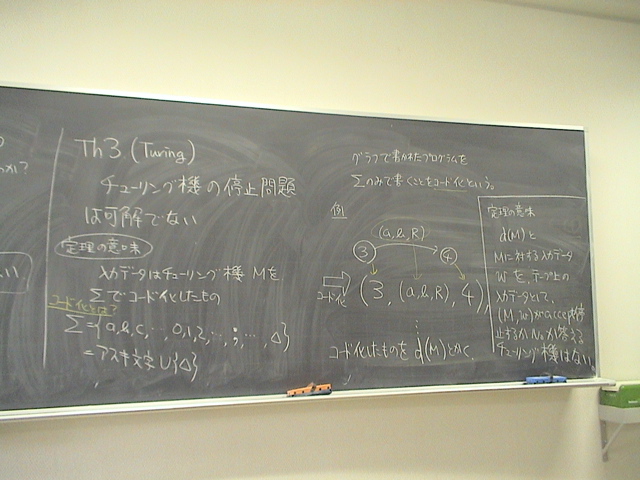 Th3 (Turing)
チューリング機の停止問題
は可解でない
定理の意味
入力データはチューリング機 Mを、
Σでコード化したもの
コード化とは?
Σ={a,b,c,…,0,1,2,…,;,…,△}
=アスキ文字∪{△}
グラフで書かれたプログラムを
Σのみで書くことをコード化という。
例
(a,b,R)
3 4
コード化
(3, (a,b,R), 4),
コード化したものを d(M)とかく
定理の意味
d(M)と
Mに対する入力データ
wを、テープ上の
入力データとして、
(M,w)が
停止するか Noか答える
チューリング機はない